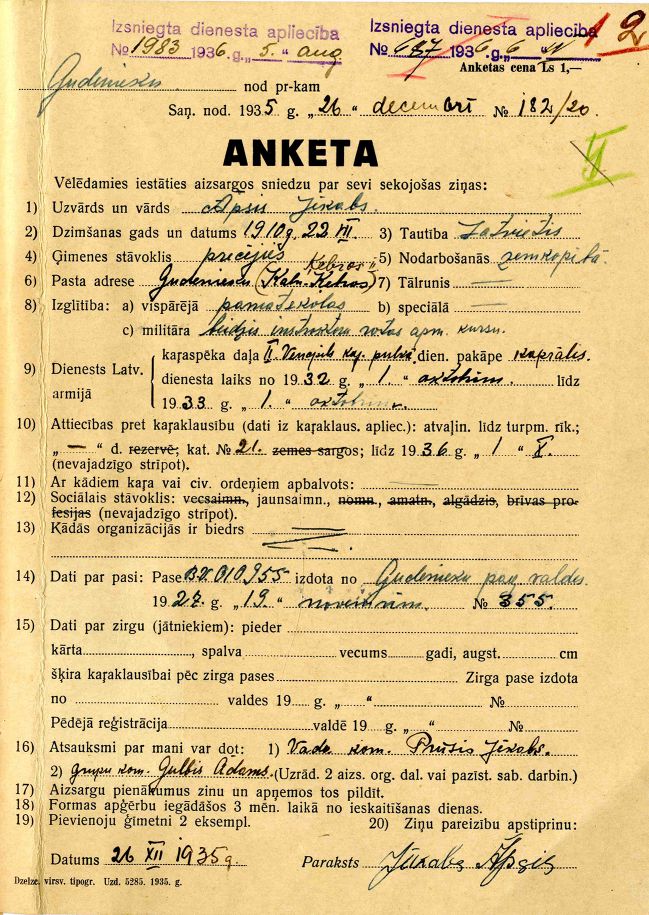 Izsniegta dienesta apliecība
№ 1983 1936. g. „ 5. “ aug
Izsniegta dienesta apliecība
№ 687 1936. g. „ 6 “
12
Anketas cena Ls 1,—
Gudenieku nod pr-kam
Saņ. nod. 1935 g. „ 26 “ decembrī № 182/20.
ANKETA
Vēlēdamies iestāties aizsargos sniedzu par sevi sekojošas ziņas:
1) Uzvārds un vārds Apsis Jēkabs.
2) Dzimšanas gads un datums 1910g. 22 III. 3) Tautība Latvietis
4) Ģimenes stāvoklis precējies 5) Nodarbošanās zemkopībā.
6) Pasta adrese Gudenieku (Kaln-Ķebros) 7) Tālrunis —
8) Izglītība: a) vispārējā pamatskolas b) speciālā —
c) militāra beidzis instruktoru rotas apm. kursu.
9) Dienests Latv. armijā
kaŗaspēka daļa II. Ventspils kaj. pulkā. dien. pakāpe kaprālis.
dienesta laiks no 1932 g. „ 1. “ oktobrim. līdz
1933 g. „ 1. “ oktobrim.
10) Attiecības pret kaŗaklausību (dati iz kaŗaklaus. apliec.): atvaļin. līdz turpm. rīk.;
„ — “ d. rezervē; kat. № 21. zemes sargos; līdz 1936. g. „ 1 “ X.
(nevajadzīgo strīpot).
11) Ar kādiem kaŗa vai civ. ordeņiem apbalvots: —
12) Sociālais stāvoklis: vecsaimn., jaunsaimn., nomn., amatn., algādzis, brīvas pro-
fesijas (nevajadzīgo strīpot).
13) Kādās organizācijās ir biedrs
14) Dati par pasi: Pase BV.010955 izdota no Gudenieku pag. valdes.
1927. g. „ 19. “ novembrim. № 355.
15) Dati par zirgu (jātniekiem): pieder
kārta , spalva vecums gadi, augst. cm
šķira kaŗaklausībai pēc zirga pases Zirga pase izdota
no valdes 19 g. „ “ №
Pēdējā reģistrācija valdē 19 g. „ “ №
16) Atsauksmi par mani var dot: 1) Vada kom. Prūsis Jēkabs.
2) grupu kom. Gulbis Adams. (Uzrād. 2 aizs. org. dal. vai pazīst. sab. darbin.)
17) Aizsargu pienākumus zinu un apņemos tos pildīt.
18) Formas apģērbu iegādāšos 3 mēn. laikā no ieskaitīšanas dienas.
19) Pievienoju ģimetni 2 eksempl. 20) Ziņu pareizību apstiprinu:
Datums 26 XII 1935g Paraksts Jēkabs Apsis
Dzelzc. virsv. tipogr. Uzd. 5285. 1935. g.